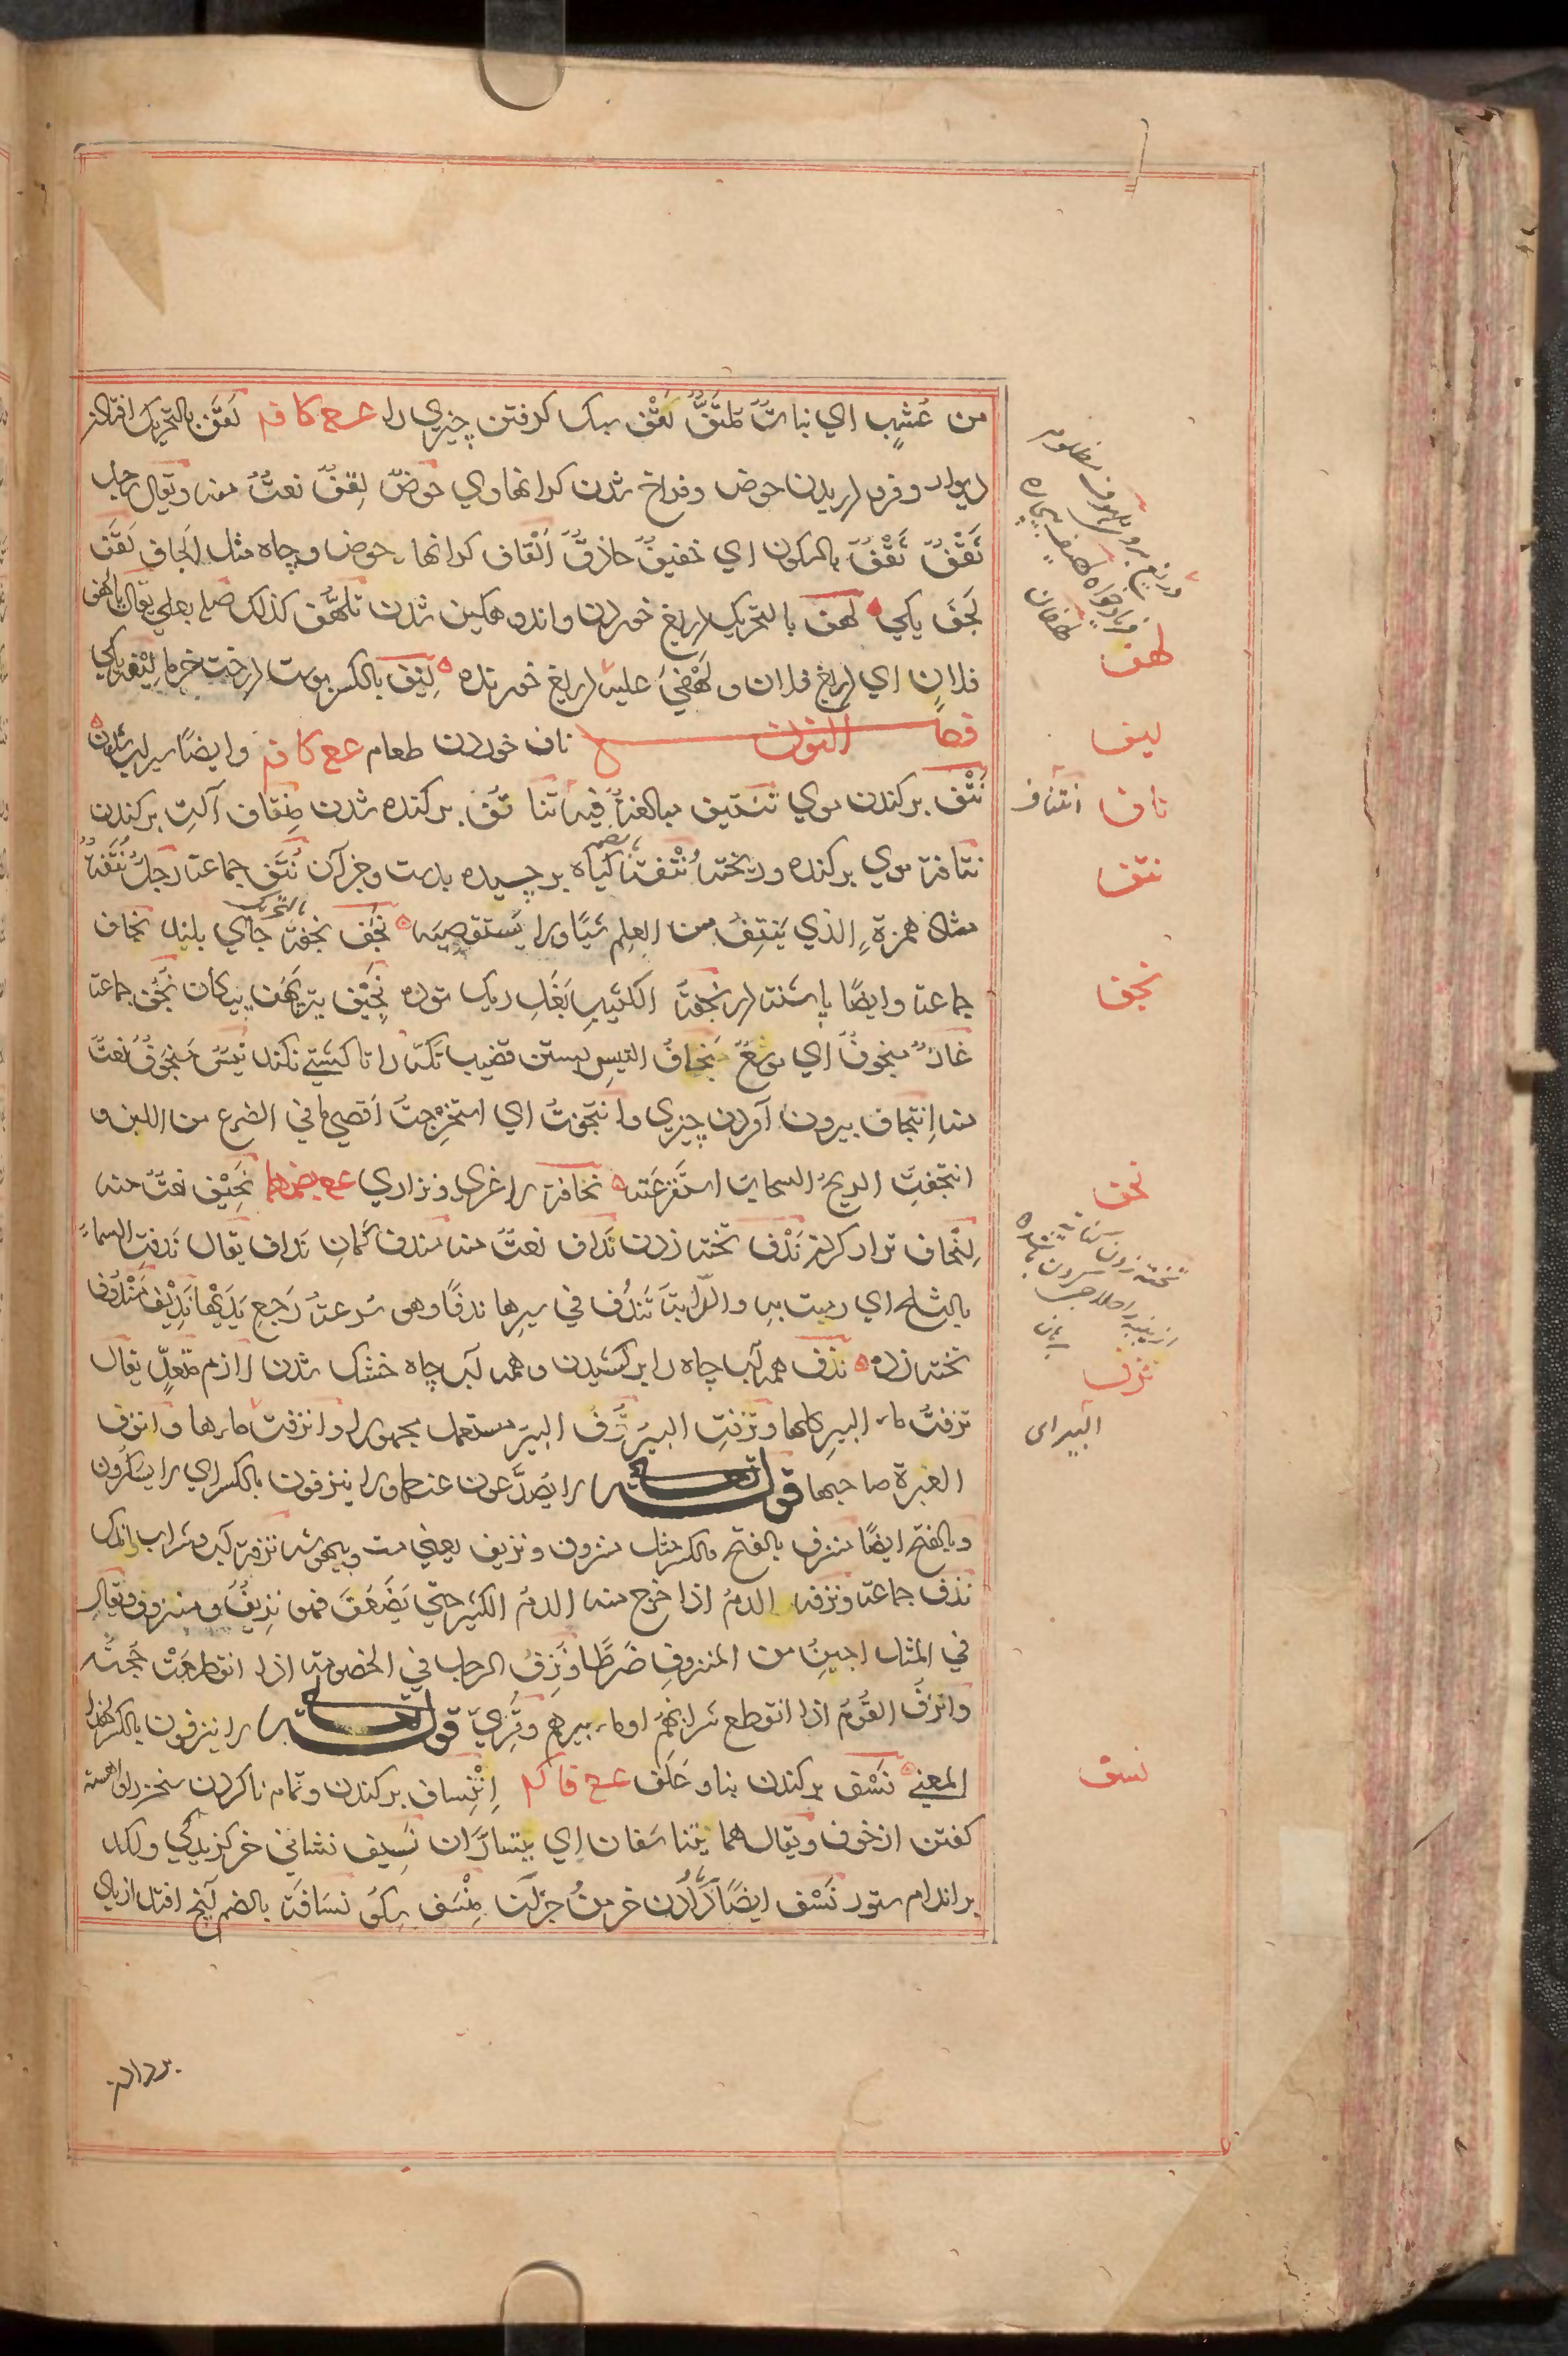 من عُشْبٍ اي نباتٌ ملتفٌّ لَقْف سبک گرفتن چیزی را ع ح کا فر لَقَف بالتحریک افتادن
دیوار و فرو دریدن حوض و فراخ شدن کرانهاوی حوضٌ لقفٌ نعتٌ منه ویقال رجل
ثَقْفٌ لَقْفٌ بالسکون اي خفیفٌ حاذقٌ اَلْقاف کرانهاء حوض و چاه مثل الجاف لَقَف
لَجَف یکی لهف بالتحریک دریغ خوردن و اندوهگین شدن تلهُّف کذلک صلے بعلی یقال یا لهف
فلانٍ اي دریغ فلان و لَهْفَیَ علیه دریغ خورنده لِیْف بالکسر پوست درخت خرما لِیْفه یکی
فصل النون ناف خوردن طعام ع ح کا فر وایضًا سیراب شدن
نَتْف برکندن موی تنتیف مبالغةٌ فیه تناتُف برکنده شدن مِنْتاف آلتِ برکندن
نتافة موی برکنده و ریخته نُتْفة گیاه برچیده بدست وجز آن نُتَف جماعة رجلٌ نُتَفةٌ
مثال همزةٍ الذي یَنتِفُ من العلم شیًا ولا یستقصیه نَجَف نَجَفة جای بلند نِجاف
جماعة وایضًا پاشنه در نَجَفةُ الکثیبِ بَغَلِ ریک توده نجیف تیر پهن پیکان نُجُف جماعة
غارٌ منجوفٌ اي موسَّعٌ نِجافُ التیسِ بستن قضیب تکه را تا کشتی نکند تیسٌ مَنجوفٌ نعتٌ
منه اِنتجاف بیرون آوردن چیزی وانتجفتُ اي استخرجتُ اقصی ما في الضرع من اللبن و
انتجفتِ الریحُ السحابَ استفرغته نحافة لاغری و نزاری ع ح بضمهما نحیف نعتٌ منه
اِنحاف نزار کردن نَدْف پخته زدن نداف نعتٌ منه مندف کمانِ نداف یقال نَدفتِ السماءُ
بالثلج اي رمیت به والدّابةُ تَندُف في سیرها ندفًا وهو سُرعةُ رَجعِ یَدَیْها نَدیف مَندوف
پخته زده نزف همه آب چاه را برکشیدن و همه آب چاه خشک شدن لازم متعدٍّ یقال
نزفتُ ماء البیر کلها ونزفتِ البیرُ نُزفَ البیر مستعمل مجهولا وانزفت ماءها وانزف
العَبرة صاحبها قوله تعالی لا یُصدَّعون عنها ولا ینزفون بالکسر اي لا یَسکرون
وبالفتح ایضًا منزف بالفتح والکسر مثل منزوف ونزیف یعني مست وبیهوش نُزفة آب و شراب اندک
نُزَف جماعة ونزفه الدمُ اذا خرج منه الدمُ الکثیر حتي یَضعُفَ فهو نزیفٌ ومنزوف ویقال
في المثل اجبنُ من المنزوفِ ضَرطًا ونُزِفَ الرجل في الخصومة اذا انقطعَتْ حُجّته
وانزفَ القومُ اذا انقطع شرابهم اوماء بیرهم وقُرِیَ قوله تعالی لا ینزفون بالکسر لهذا
المعني نَسْف برکندن بنا و علف ع ح فا کم اِنْتِساف برکندن وتمام ناکردن سخن را و آهسته
گفتن از خوف ویقال هما یتناسفان اي یتسارّان نَسیف نشانی خر گزیدکی ولکد
بر اندام ستور نَسْف ایضًا باد دادن خرمن و جز آن مِنْسَف برکو نُسافة بالضم آنچه افتد از باد
لهف
لیف
ناف
نتف
نجف
نحف
نزف
البیر ای
نسف